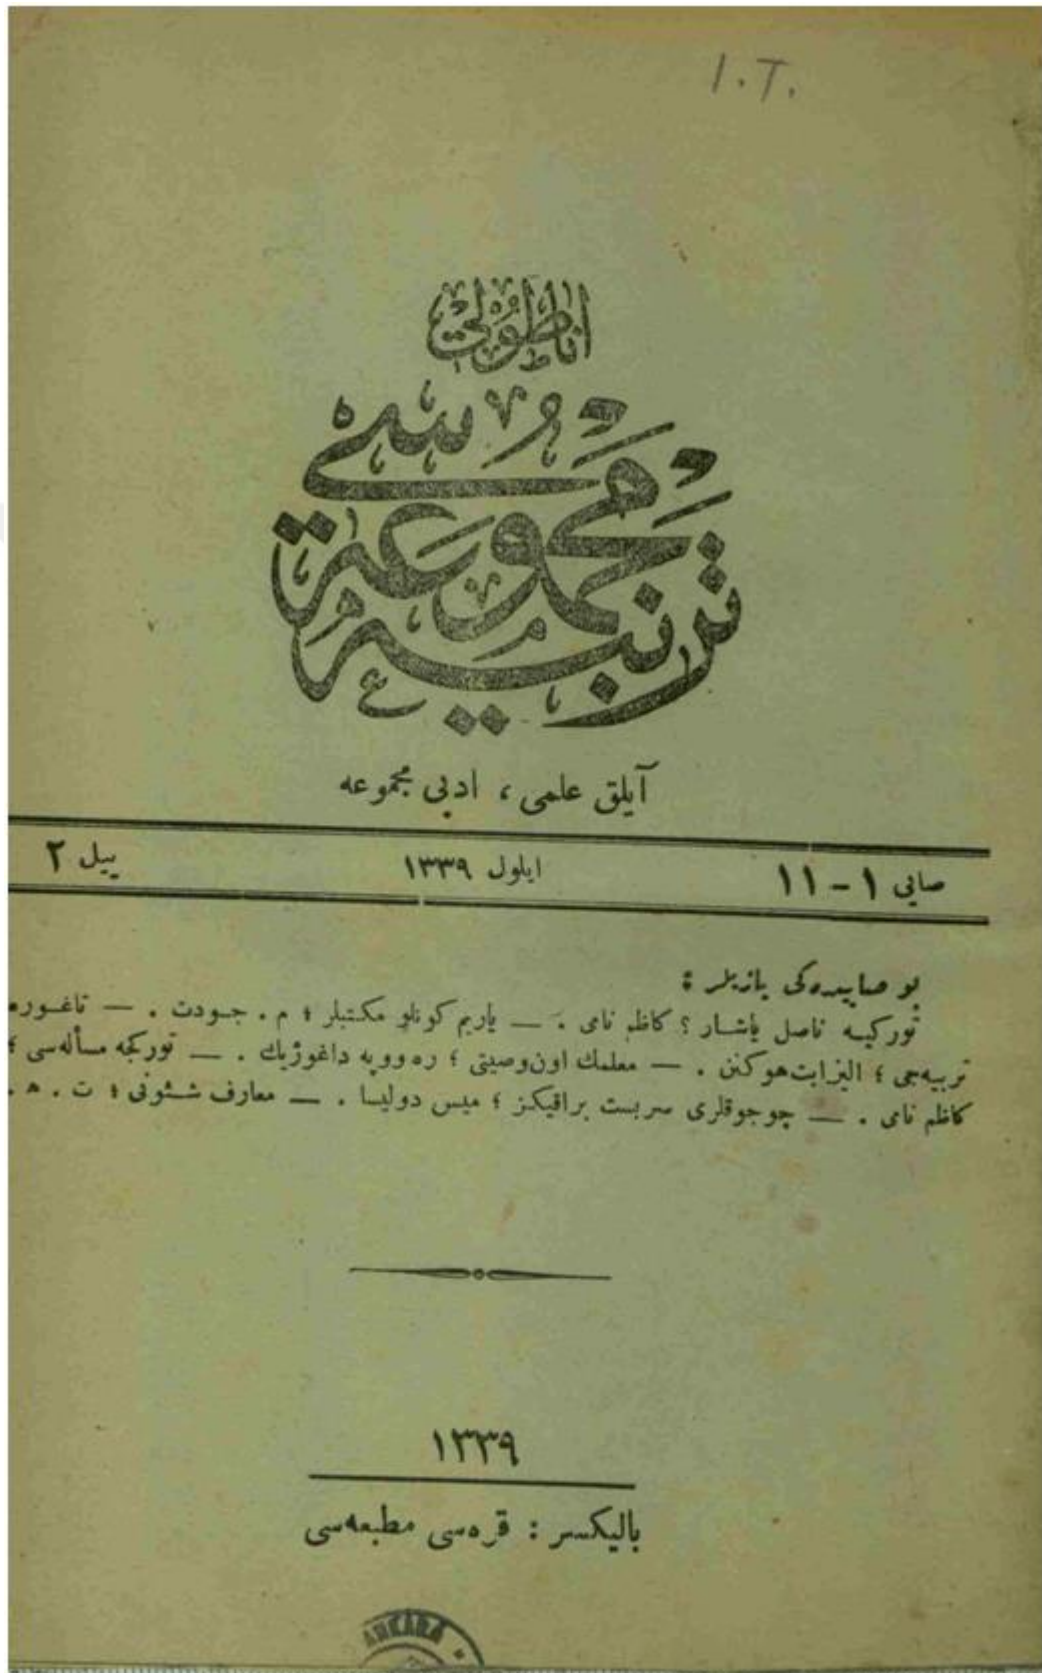 I.T.
اناطولی
تربیه مجموعه‌سی
آیلق علمی ، ادبی مجموعه
صایی ۱ - ۱۱ ایلول ۱۳۳۹ ییل ۲
بو صاییده‌کی یازیلر :
تورکیه ناصل یاشار ؟ کاظم نامی . — یاریم کونلو مکتبلر ؛ م . جودت . — تاغوره
تربیه‌جی ؛ الیزابت هوکنن . — معلمك اون وصیتی ؛ ره‌ووپه داغوژیك . — تورکجه مسأله‌سی ؛
کاظم نامی . — چوجوقلری سربست براقیکز ؛ میس دولیسا . — معارف شئونی ؛ ت . ه .
۱۳۳۹
بالیکسر : قره‌سی مطبعه‌سی
ANKARA